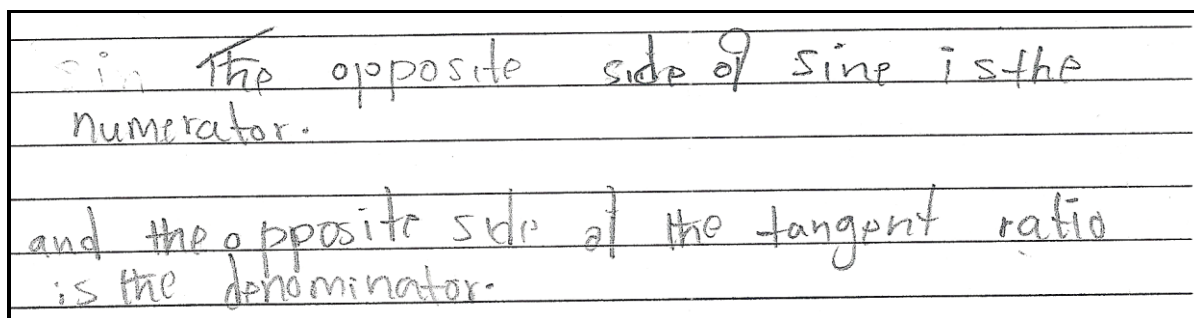 sin The opposite side of sine is the
numerator.
and the opposite side of the tangent ratio
is the denominator.